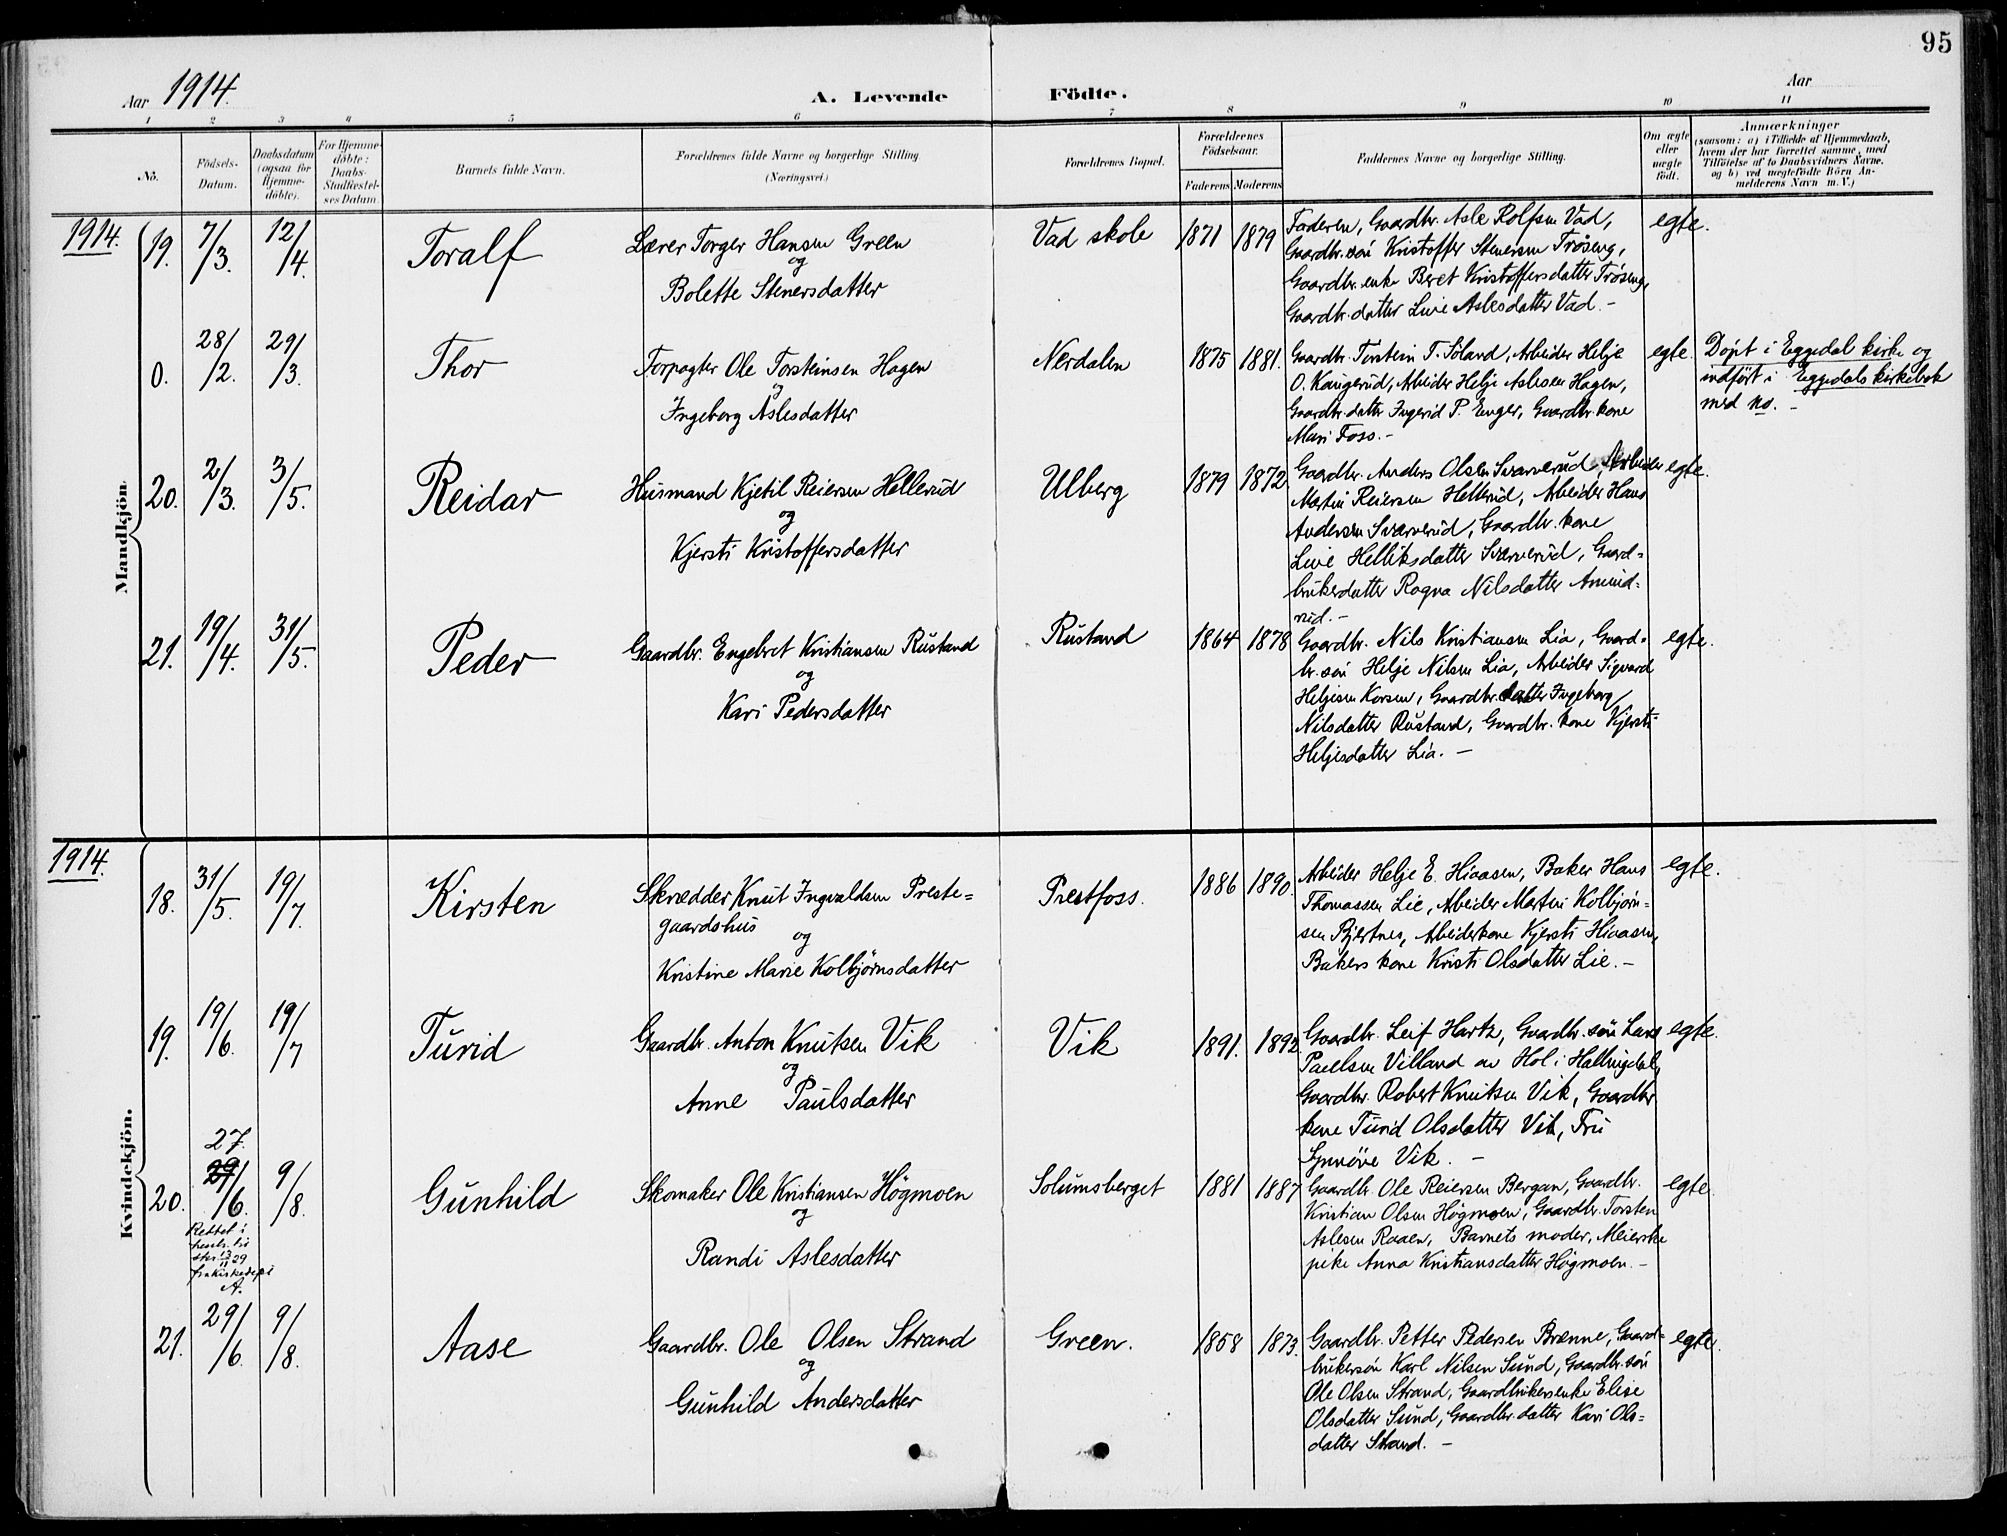 95
Aar 1914.
A. Levende Födte.
Aar
1 2 3 4 5 6 7 8 9 10 11
No.
Födsels-
Datum.
Daabsdatum
(ogsaa for
Hjemme-
döbte).
For Hjemme-
döbte:
Daabs-
Stadfæstel-
ses Datum.
Barnets fulde Navn.
Forældrenes fulde Navne og borgerlige Stilling.
(Næringsvei.)
Forældrenes Bopæl.
Forældrenes
Födselsaar.
Faderens Moderens
Faddernes Navne og borgerlige Stilling.
Om ægte
eller
uægte
födt.
Anmærkninger
(saasom: a) i Tilfælde af Hjemmedaab,
hvem der har forrettet samme, med
Tilföielse af to Daabsvidners Navne.
og b) ved uægtefödte Börn An-
melderens Navn m. V.)
Mandkjön.
1914.
19. 7/3. 12/4. Toralf
Lærer Torger Hansen Green
og
Bolette Stenersdatter
Vad skole 1871 1879
Faderen, Gaardbr. Asle Rolfsen Vad,
Gaardbr. søn Kristoffer Stenersen Trøseng,
Gaardbr. enke Beret Kristoffersdatter Trøseng,
Gaardbr. datter Live Aslesdatter Vad. -
egte.
0. 28/2. 29/3. Thor
Forpagter Ole Torsteinsen Hagen
og
Ingeborg Aslesdatter
Nerdalen 1875 1881.
Gaardbr. Torstein T. Söland, Arbeider Helje
O. Kaugerud, Arbeider Helje Aslesen Hagen,
Gaardbr. datter Ingerid P. Enger, Gaardbr. kone
Mari Foss. -
egte.
Döpt i Eggedal kirke og
indfört i Eggedals kirkebok
med no. -
20. 2/3. 3/5. Reidar
Husmand Kjetil Reiersen Hellerud
og
Kjersti Kristoffersdatter
Ulberg 1879 1872
Gaardbr. Anders Olsen Sværverud, Arbeider
Martin Reiersen Hellerud, Arbeider Hans
Andersen Sværverud, Gaardbr. kone
Live Helliksdatter Sværverud, Gaard-
brukerdatter Ragna Nilsdatter Amund-
rud. -
egte.
21. 19/4. 31/5. Peder
Gaardbr. Engebret Kristiansen Rustand
og
Kari Pedersdatter
Rustand 1864 1878
Gaardbr. Nils Kristiansen Lia, Gaard-
br. søn Helje Nilsen Lia, Arbeider Sigvard
Heljesen Korsen, Gaardbr. datter Ingeborg
Nilsdatter Rustand, Gaardbr. kone Kjersti
Heljesdatter Lia. -
egte.
Kvindekjön.
1914.
18. 31/5. 19/7. Kirsten
Skrædder Knut Ingvaldsen Preste-
gaardshus
og
Kristine Marie Kolbjørnsdatter
Prestfoss. 1886 1890.
Arbeider Helje E. Hiaasen, Baker Hans
Thomassen Lie, Arbeider Martin Kolbjørn-
sen Bjertnes, Arbeiderkone Kjersti Hiaasen,
Bakers kone Kristi Olsdatter Lie. -
egte.
19. 19/6. 19/7 Turid
Gaardbr. Anton Knutsen Vik
og
Anne Paulsdatter
Vik 1891. 1892.
Gaardbr. Leif Hartz, Gaardbr. søn Lars
Paulsen Villand av Hol i Hallingdal,
Gaardbr. Robert Knutsen Vik, Gaardbr.
kone Turid Olsdatter Vik, Fru
Synnöve Vik. -
egte.
27.
20. 29/6. 9/8. Gunhild
Rettet i
13/11 29
A.
Skomaker Ole Kristiansen Högmoen
og
Randi Aslesdatter
Solumsberget 1881 1887
Gaardbr. Ole Reiersen Bergan, Gaardbr.
Kristian Olsen Högmoen, Gaardbr. Torsten
Aslesen Raaen, Barnets moder, Meierske
pike Anna Kristiansdatter Högmoen. -
egte.
21. 29/6. 9/8. Aase
Gaardbr. Ole Olsen Strand
og
Gunhild Andersdatter
Green. 1858 1873.
Gaardbr. Petter Pedersen Brenne, Gaard-
brukersøn Karl Nilsen Sund, Gaardbr. søn
Ole Olsen Strand, Gaardbrukersenke Elise
Olsdatter Sund, Gaardbr. datter Kari Ols-
datter Strand. -
egte.